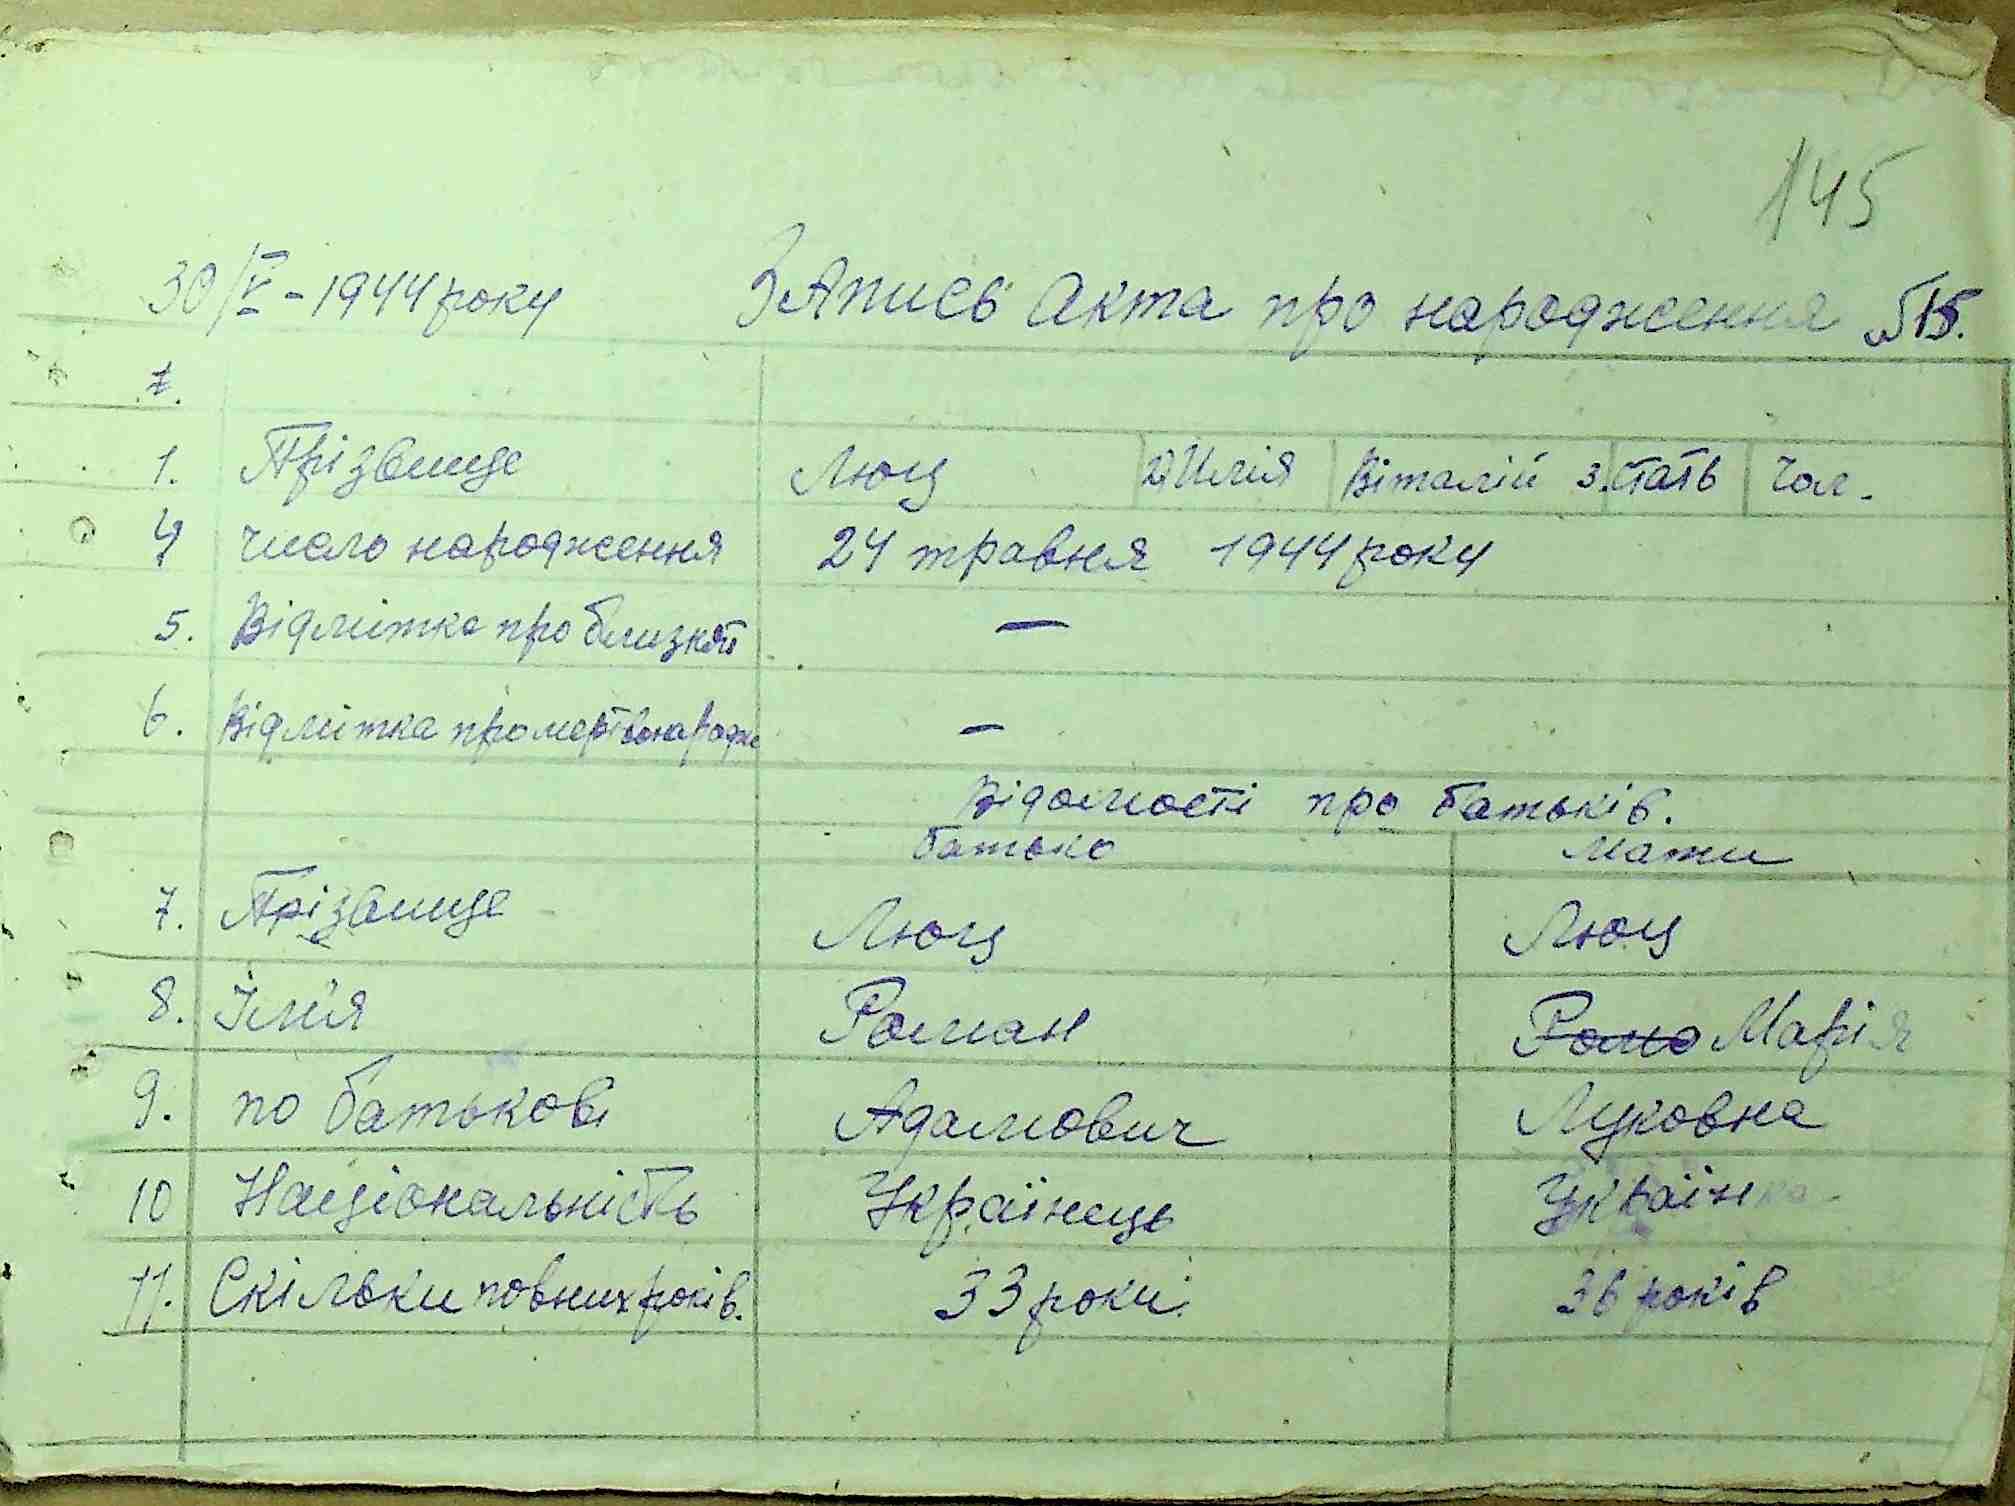 145
30/V - 1944 року Запись Акта про народження №15.
1. Прізвище Люц 2) Имія Віталій 3. стать Чол.
4 число народження 24 травня 1944 року
5. Відмітка про близнят —
6. Відмітка про мертвонародж —
Відомості про батьків.
батько мати
7. Прізвище Люц Люц
8. Імія Роман Рома Марія
9. по батькові Адамович Луковна
10 Національність Українець Українка.
11. Скільки повних років. 33 роки. 36 років